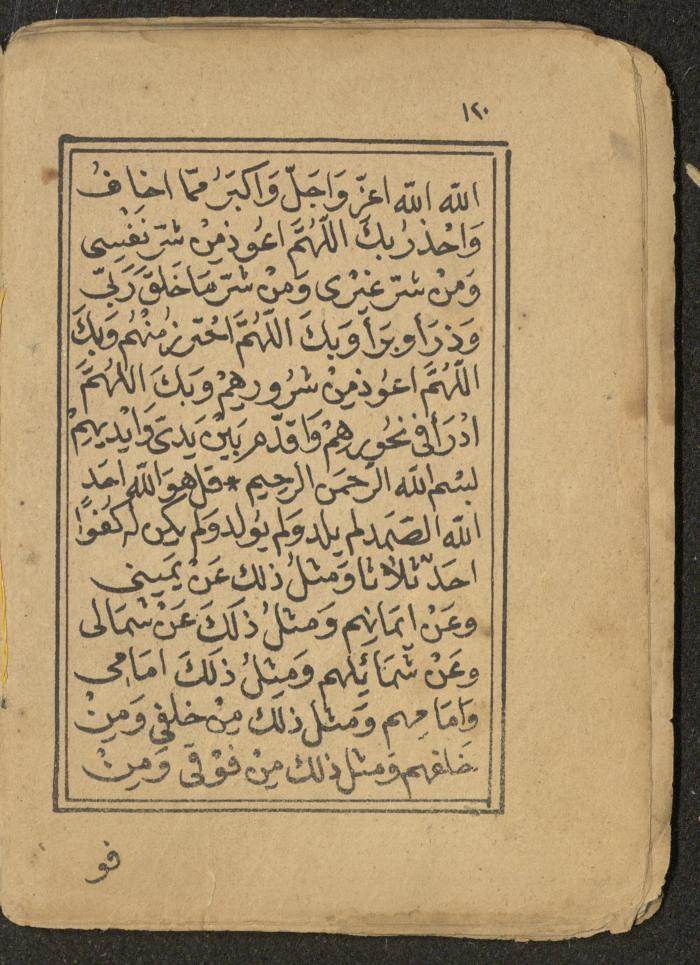 ١٢٠
الله الله اعزّ وَاجَلّ وَاكبَرُ ممّا اخافُ
وَاحْذرُ بكَ اللّهُمَّ اعُوذ مِنْ شرّ نَفْسِى
وَمنْ شرّ غيْرى وَمنْ شرّ مَا خَلقَ رَبّى
وَذرَأ وبرَأ وَبكَ اللّهُمَّ احْترزُ منْهُم وَبكَ
اللّهُمَّ اعُوذ مِنْ شرُورهِمْ وَبكَ اللهُمَّ
ادْرَأ فى نحُورهِمْ وَاقدّم بَيْن يَدىّ وَايْديهِمْ
بسْم الله الرحمَن الرحيم * قل هوَ الله احَد
الله الصَمَد لم يلد وَلم يُولد وَلم يكن له كفُوًا
احَدٌ ثلاثا وَمثلُ ذلك عَنْ يَمينى
وعَنْ ايمَانهم وَمثلُ ذلكَ عَنْ شمَالى
وعَنْ شمَائِلهم وَمِثلُ ذلكَ امَامِى
وَامَامهم وَمثل ذلك مِنْ خلفى وَمِنْ
خَلفهم وَمثل ذلك مِنْ فوْقى وَمِنْ
فو